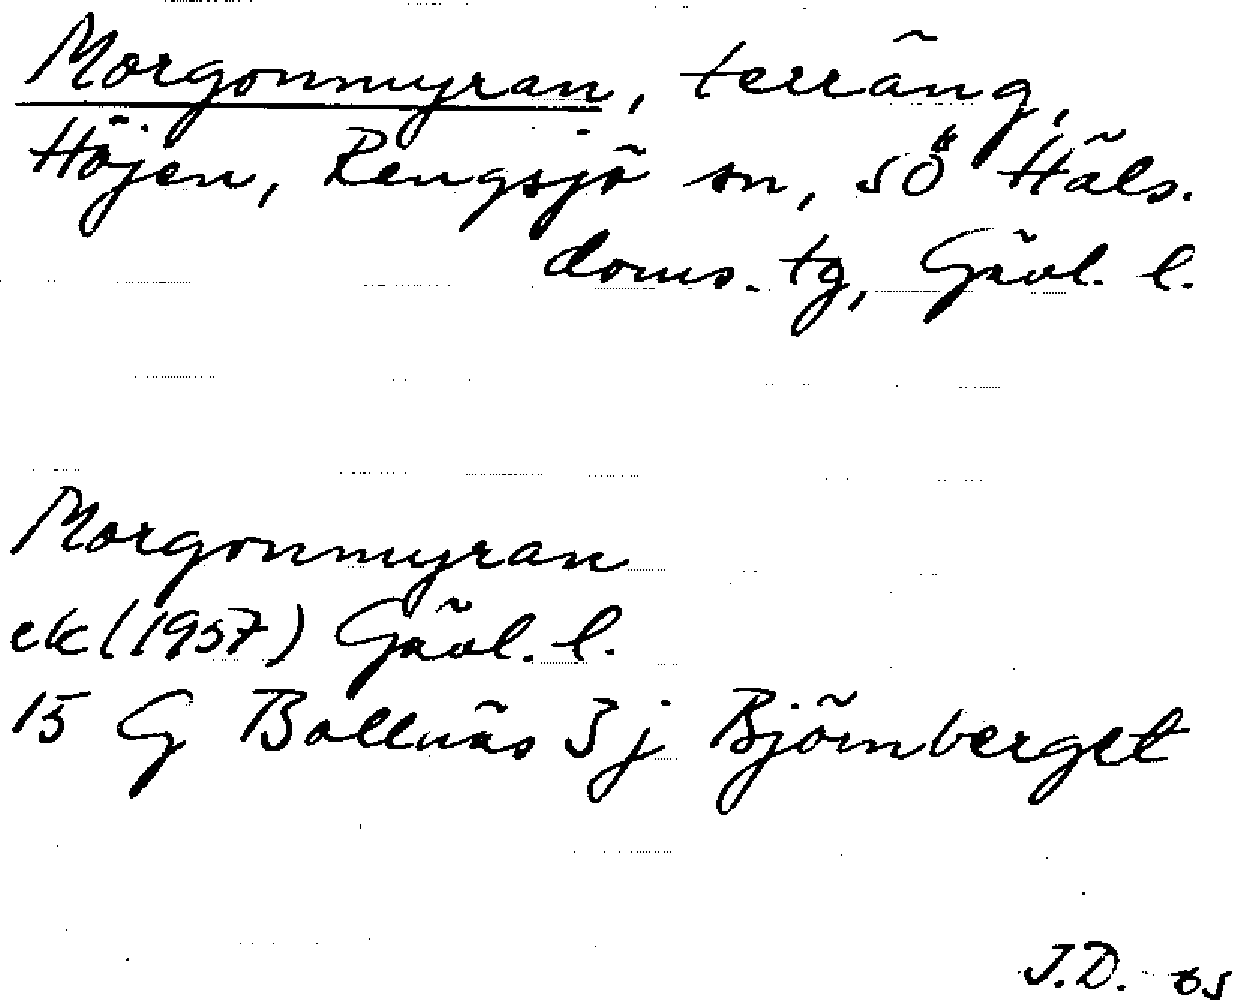 Morgonmyran, terräng,
Höjen, Rengsjö sn, SÖ Häls.
doms. tg, Gävl. l.
Morgonmyran
ek (1957) Gävl. l.
15 G Bollnäs 3j Björnberget
J.D.